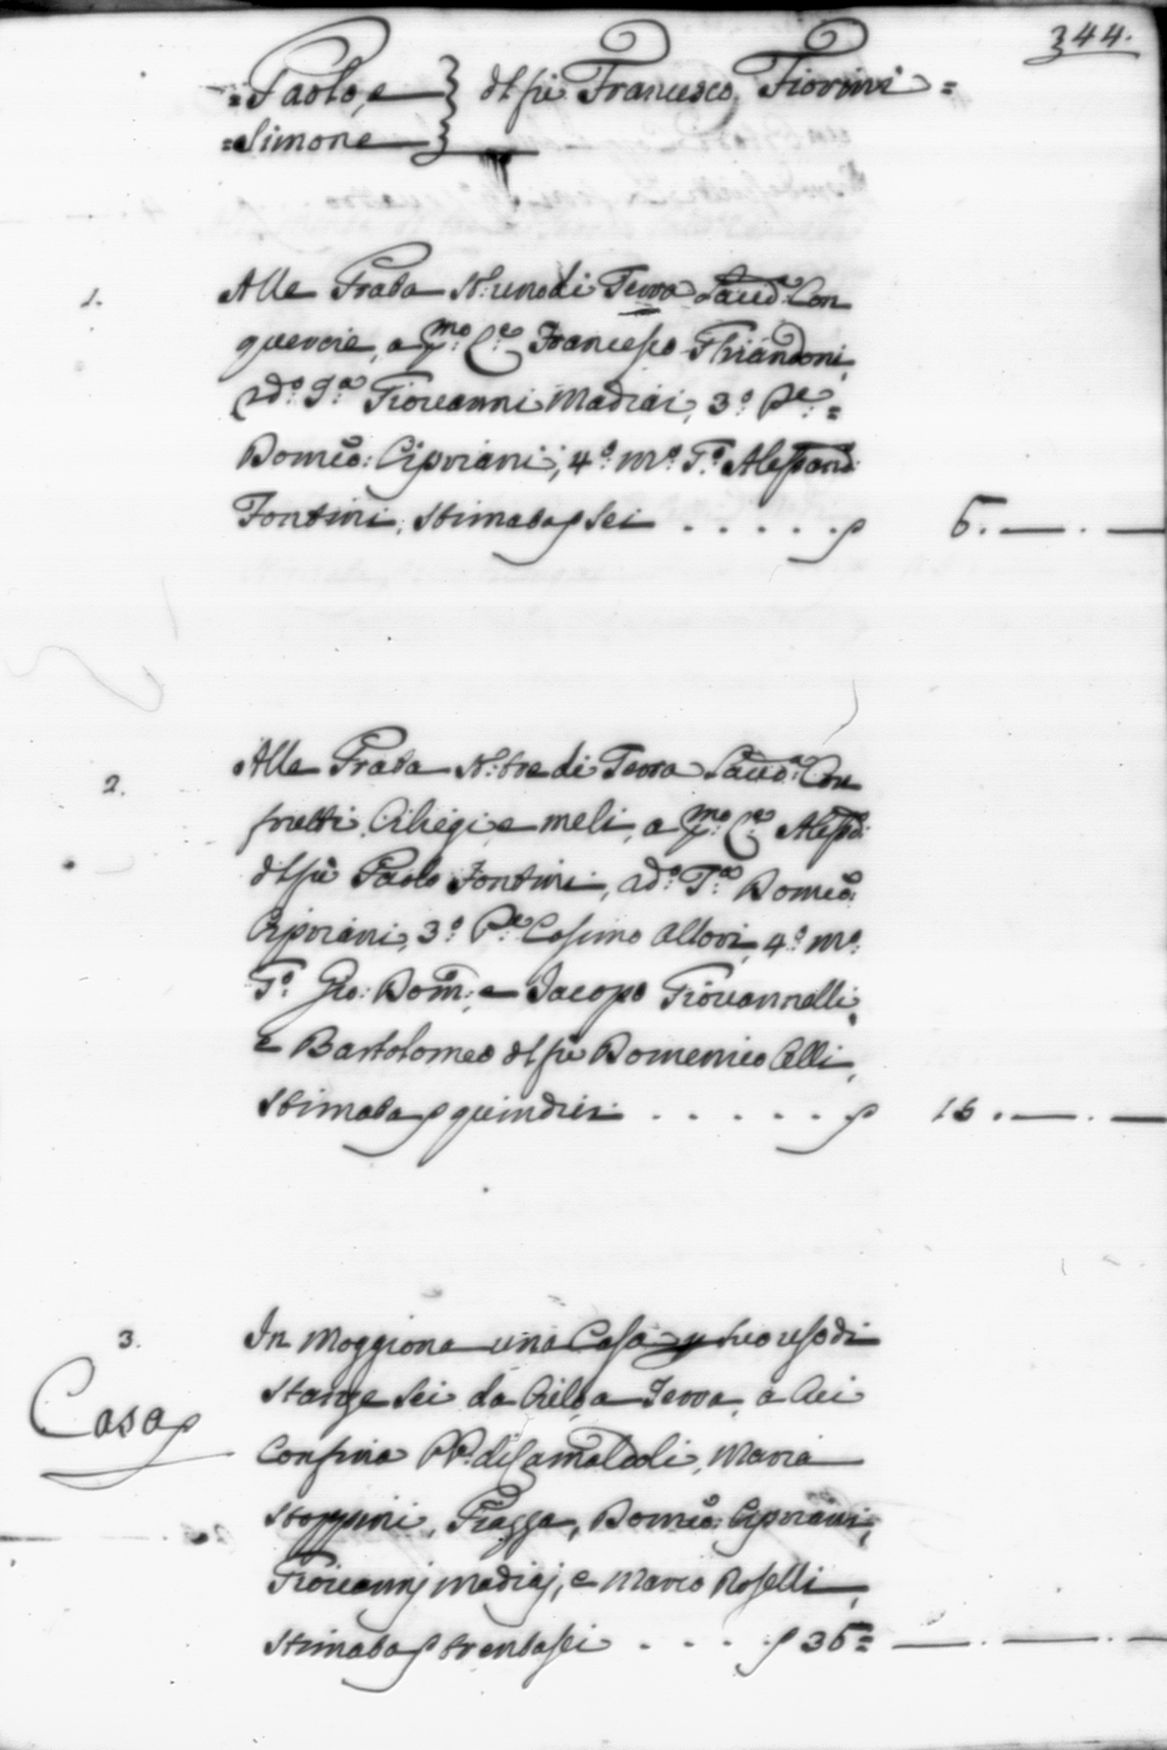 344.
=Paolo, e } dl fù Francesco Fiorini=
=Simone }
1. Alle Prata St: uno di Terra Lauor: Con
querce, a Pmo: Ce: Francesco
2do: Ta: Giovanni Madiai, 3o: Pe:=
Domco: Cipriani, 4o: mo: To: Alessand:
Fontini, stimata p sei . . . . . p 6. — . —
2. Alle Prata St: tre di Terra Lauor: Con
frutti Ciliegi, e meli, a Pmo: Ce: Alessd:
dl fù Paolo Fontini, 2do: Ta: Domco:
Cipriani, 3o: Pe: Cosimo Allori, 4o: mo:
To: Gio: Dom:, e Jacopo Giovannelli,
e Bartolomeo dl fù Domenico Alli,
stimata p quindici . . . . . p 15. — . —
3. In Moggiona una Casa p suo uso di
Casa
stanze sei da Cielo a Terra, a Cui
Confina PP. di Camaldoli, Maria
Stoppini, Piazza, Domco: Cipriani,
Giovannj Madiaj, e Marco Roselli,
stimata p trentasei . . . . p 36= — . — . —